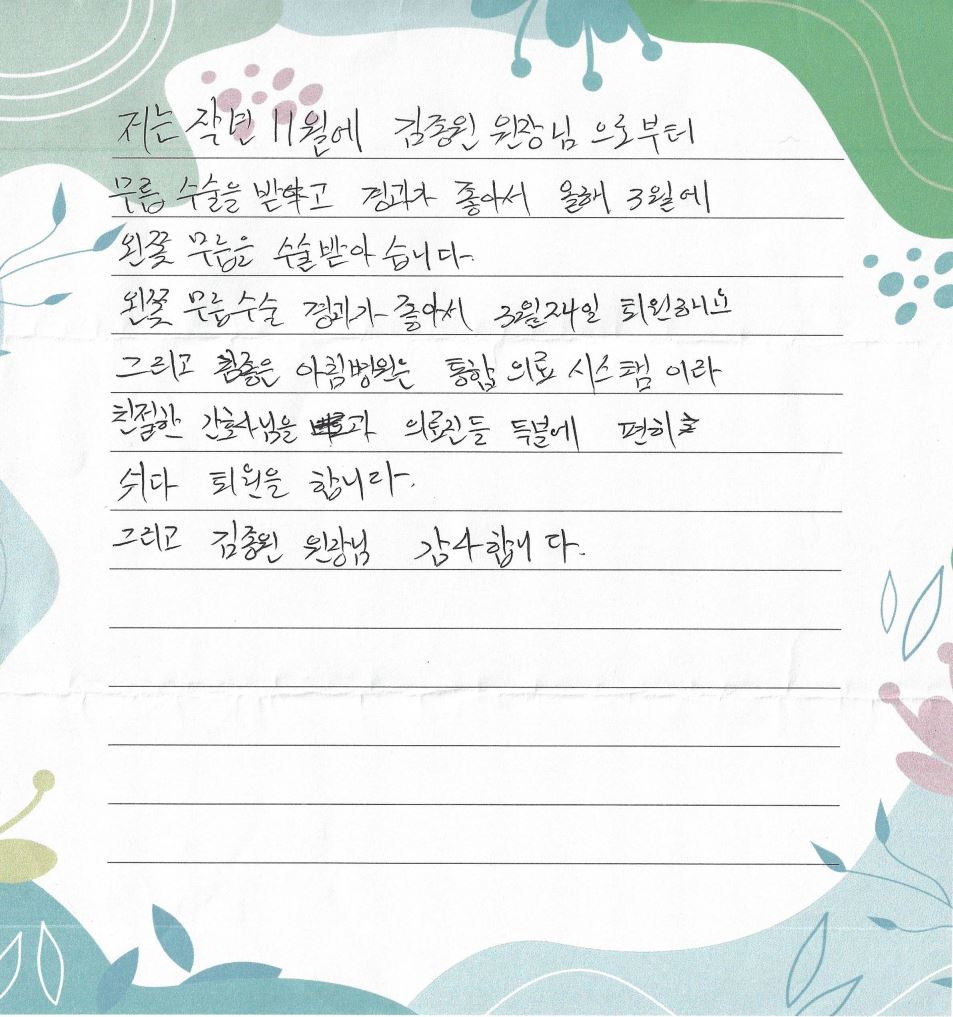 저는 작년 11월에 김종원 원장님 으로부터
무릎 수술을 받고 경과가 좋아서 올해 3월에
왼쪽 무릎을 수술받아 습니다.
왼쪽 무릎수술 경과가 좋아서 3월24일 퇴원하니
그리고 참좋은 아침병원는 통합 의료 시스템 이라
친절한 간호사님을 과 의료진들 득분에 편히
쉬다 퇴원을 합니다.
그리고 김종원 원장님 감사합니다.